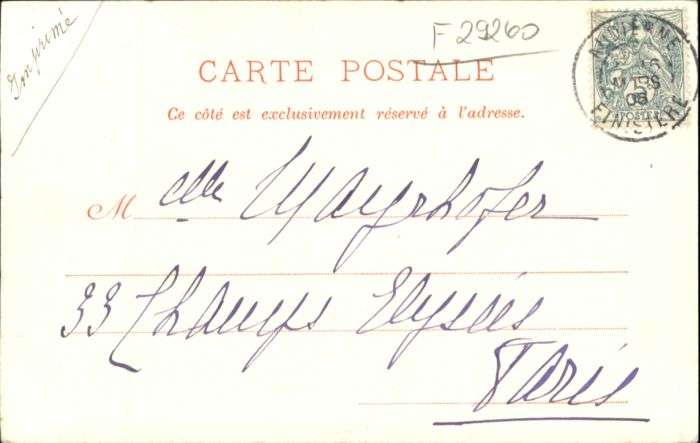 Imprimé
F 29260
CARTE POSTALE
Ce côté est exclusivement réservé à l'adresse.
M elle Mayrhofer
33 Champs Elysées
Paris
AUDIERNE
FINISTERE
08
5
POSTES